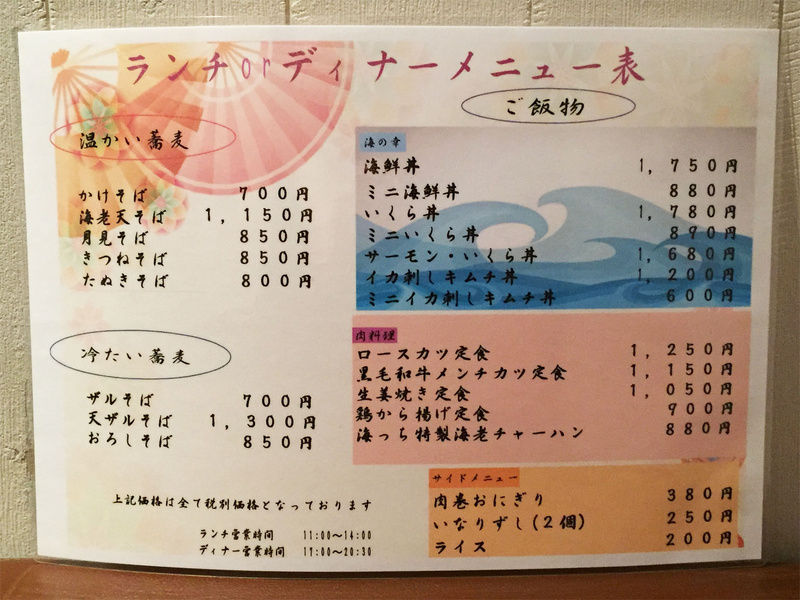 ランチorディナーメニュー表
温かい蕎麦
かけそば 700円
海老天そば 1,150円
月見そば 850円
きつねそば 850円
たぬきそば 800円
冷たい蕎麦
ザルそば 700円
天ザルそば 1,300円
おろしそば 850円
上記価格は全て税別価格となっております
ランチ営業時間 11:00〜14:00
ディナー営業時間 17:00〜20:30
ご飯物
海の幸
海鮮丼 1,750円
ミニ海鮮丼 880円
いくら丼 1,780円
ミニいくら丼 890円
サーモン・いくら丼 1,680円
イカ刺しキムチ丼 1,200円
ミニイカ刺しキムチ丼 600円
肉料理
ロースカツ定食 1,250円
黒毛和牛メンチカツ定食 1,150円
生姜焼き定食 1,050円
鶏から揚げ定食 900円
海っち特製海老チャーハン 880円
サイドメニュー
肉巻おにぎり 380円
いなりずし(2個) 250円
ライス 200円